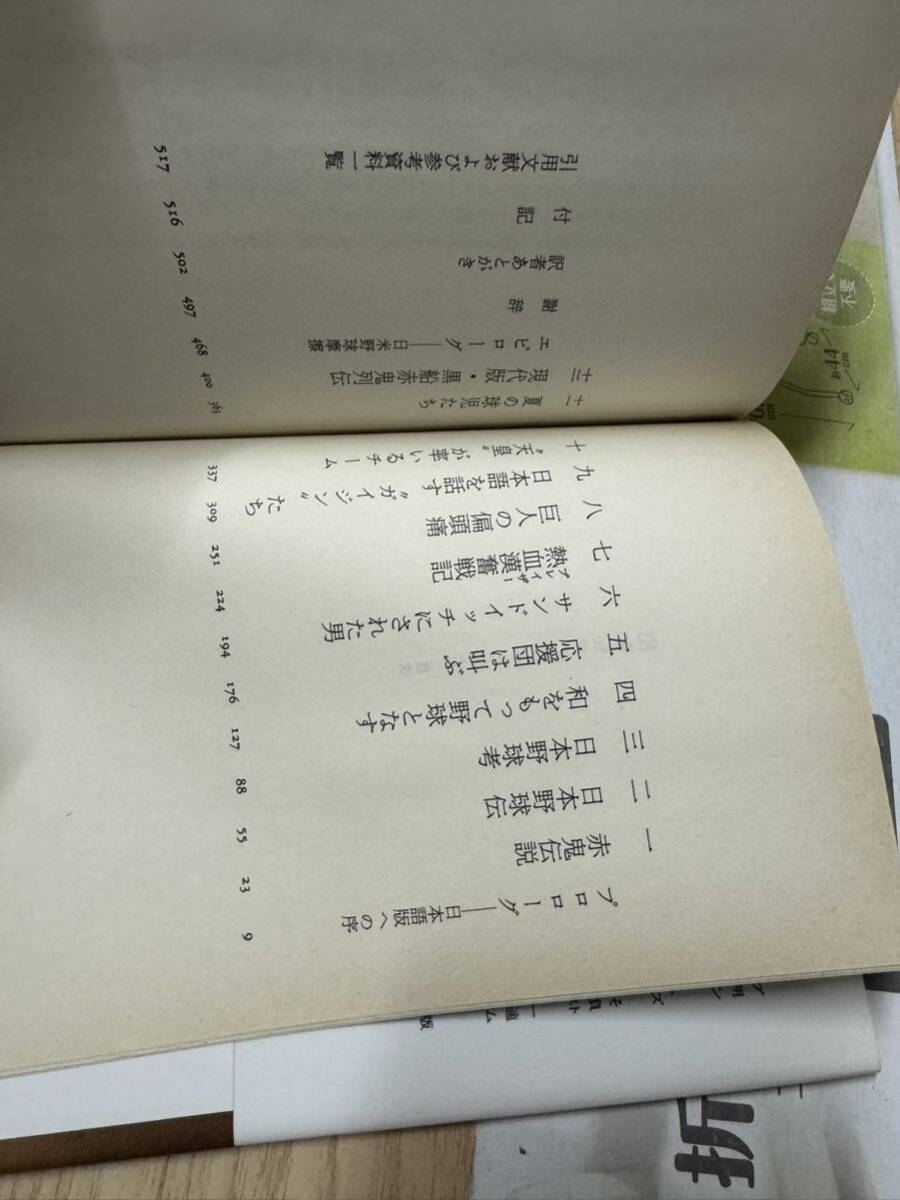 プロローグ——日本語版への序 9
一 赤鬼伝説 23
二 日本野球伝 55
三 日本野球考 88
四 和をもって野球となす 127
五 応援団は叫ぶ 176
六 サンドイッチにされた男 194
七 熱血漢奮戦記 224
ブレイザー
八 巨人の偏頭痛 251
九 日本語を話す〝ガイジン〟たち 309
十 〝天皇〟が率いるチーム 337
十一 夏の球児たち 363
十二 現代版・黒船赤鬼列伝 400
エピローグ——日米野球摩擦 468
謝辞 497
訳者あとがき 502
付記 516
引用文献および参考資料一覧 517
不要
約44cm
折